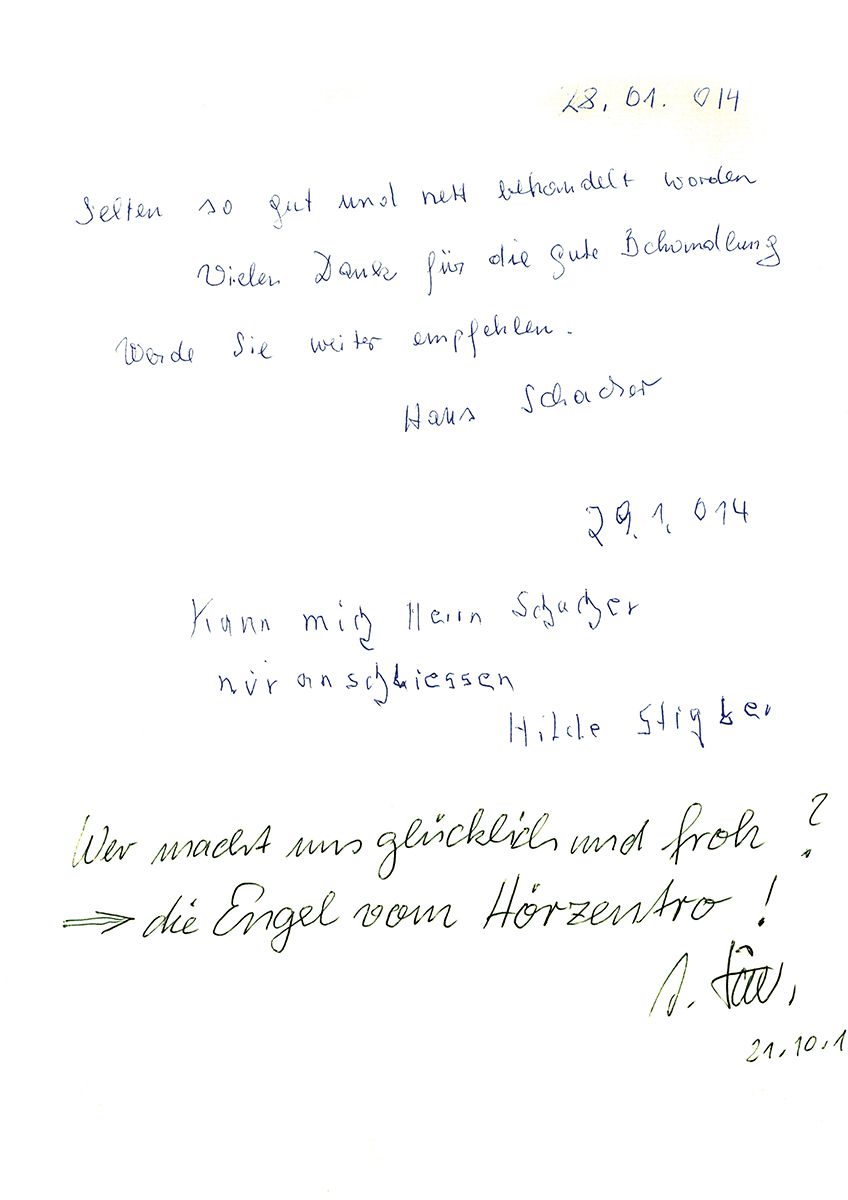 28. 01. 014
Selten so gut und nett behandelt worden
Vielen Dank für die gute Behandlung
Werde Sie weiter empfehlen.
Hans Schacher
29. 1. 014
Kann mich Herrn Schacher
nur anschliessen
Hilde
Wer macht uns glücklich und froh ?
⇒ die Engel vom Hörzentro !
21.10.1